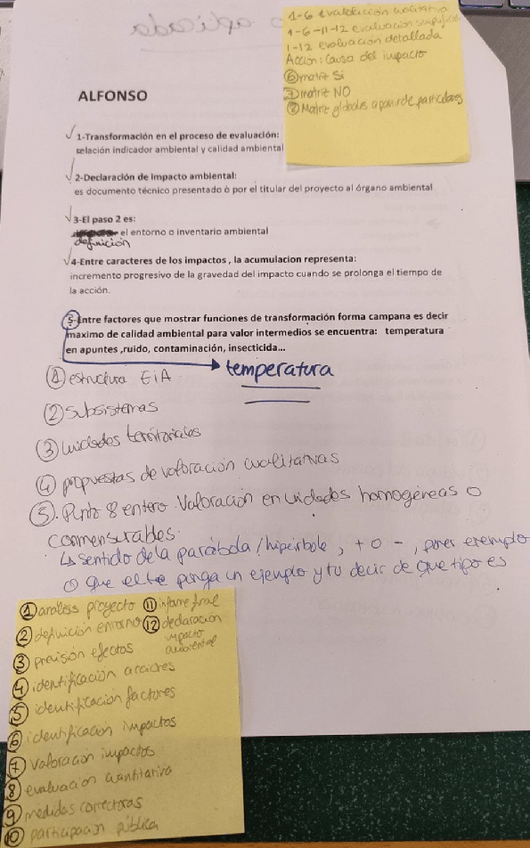 1-6 evaluación cualitativa
1-6-11-12 evaluación simplific
1-12 evaluación detallada
Acción: causa del impacto
⑥ matriz Si
⑦ matriz NO
⑧ Matriz globales a partir de particulares
ALFONSO
✓ 1-Transformación en el proceso de evaluación:
relación indicador ambiental y calidad ambiental
✓ 2-Declaración de impacto ambiental:
es documento técnico presentado ò por el titular del proyecto al órgano ambiental
✓ 3-El paso 2 es:
el entorno o inventario ambiental
definición
✓ 4-Entre caracteres de los impactos , la acumulacion representa:
incremento progresivo de la gravedad del impacto cuando se prolonga el tiempo de
la acción.
5-Entre factores que mostrar funciones de transformación forma campana es decir
maximo de calidad ambiental para valor intermedios se encuentra: temperatura
en apuntes ,ruido, contaminación, insecticida...
temperatura
① estructura EIA
② subsistemas
③ unidades territoriales
④ propuestas de valoración cualitativas
⑤. Punto 8 entero. Valoración en unidades homogéneas o
conmensurables.
↳ sentido de la parábola / hipérbole, + o -, poner exemplo
o que el te ponga un ejemplo y tu decir de que tipo es
① análisis proyecto ⑪ informe final
② definición entorno ⑫ declaración
impacto
ambiental
③ previsión efectos
④ identificación acciones
⑤ identificación factores
⑥ identificación impactos
⑦ valoración impactos
⑧ evaluación cuantitativa
⑨ medidas correctoras
⑩ participación pública